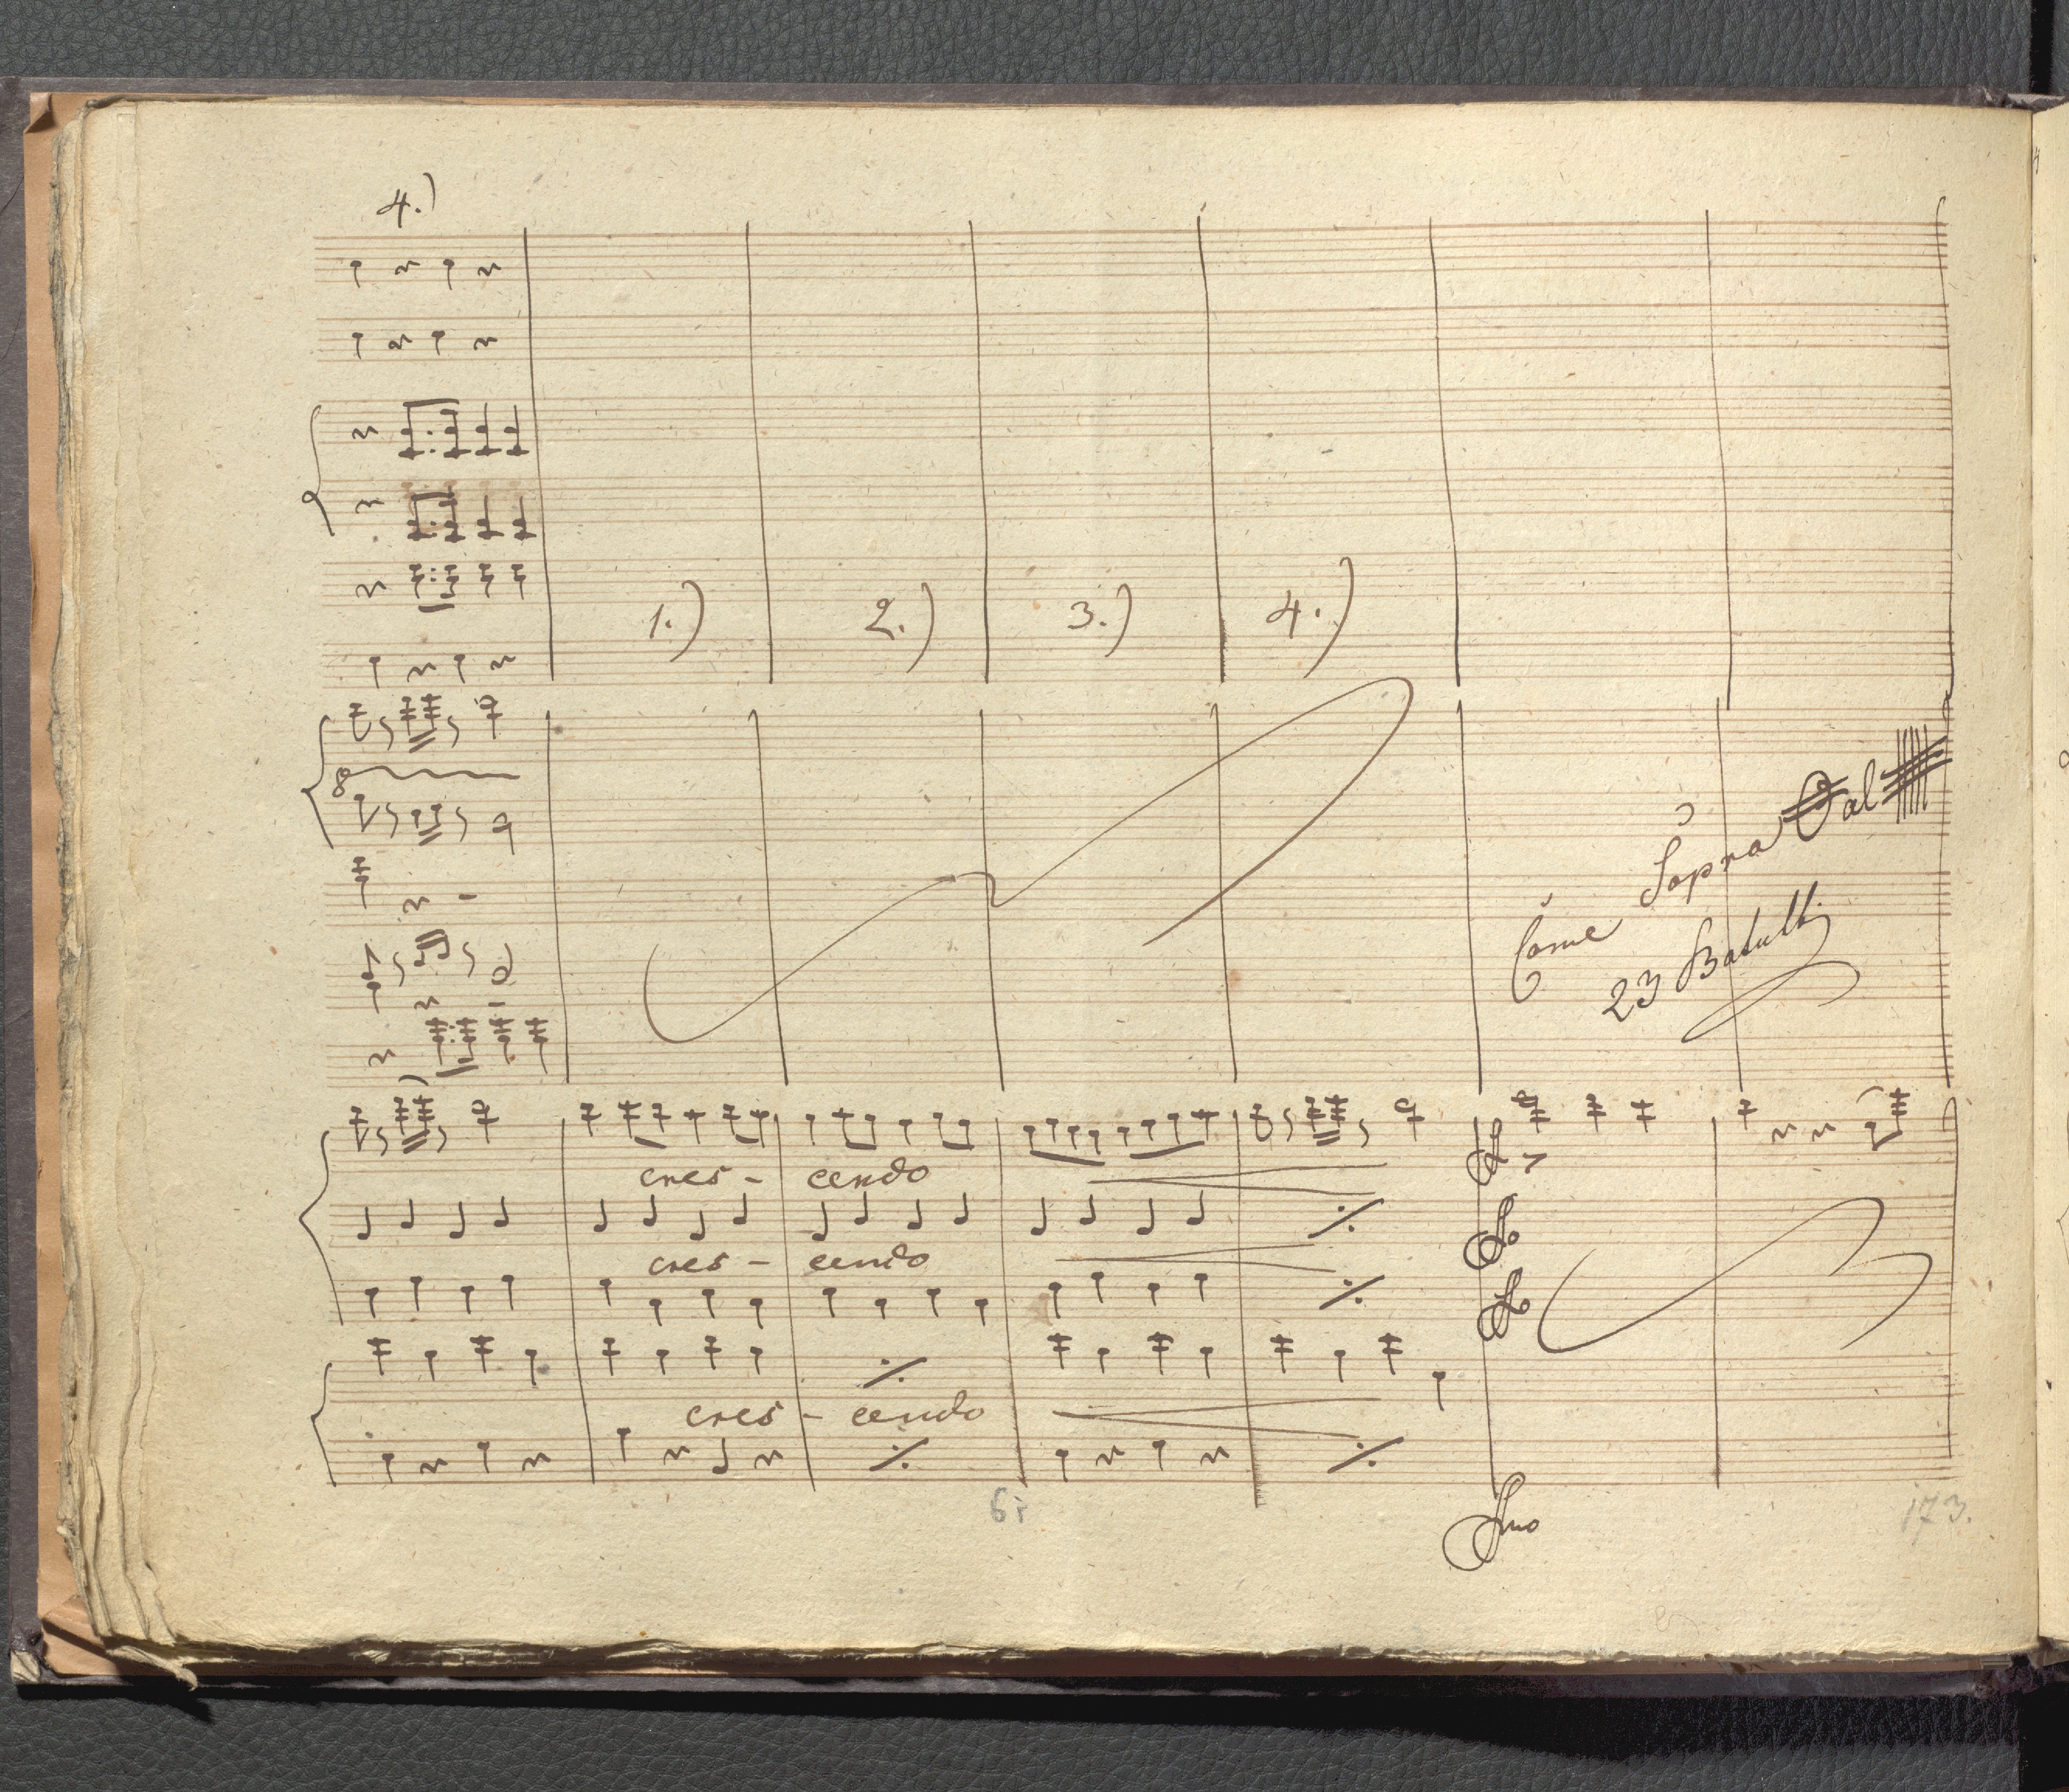 4.)
1.) 2.) 3.) 4.)
8
Come Sopra al
23 Battutti
cres - cendo
cres - cendo
cres - cendo
173.